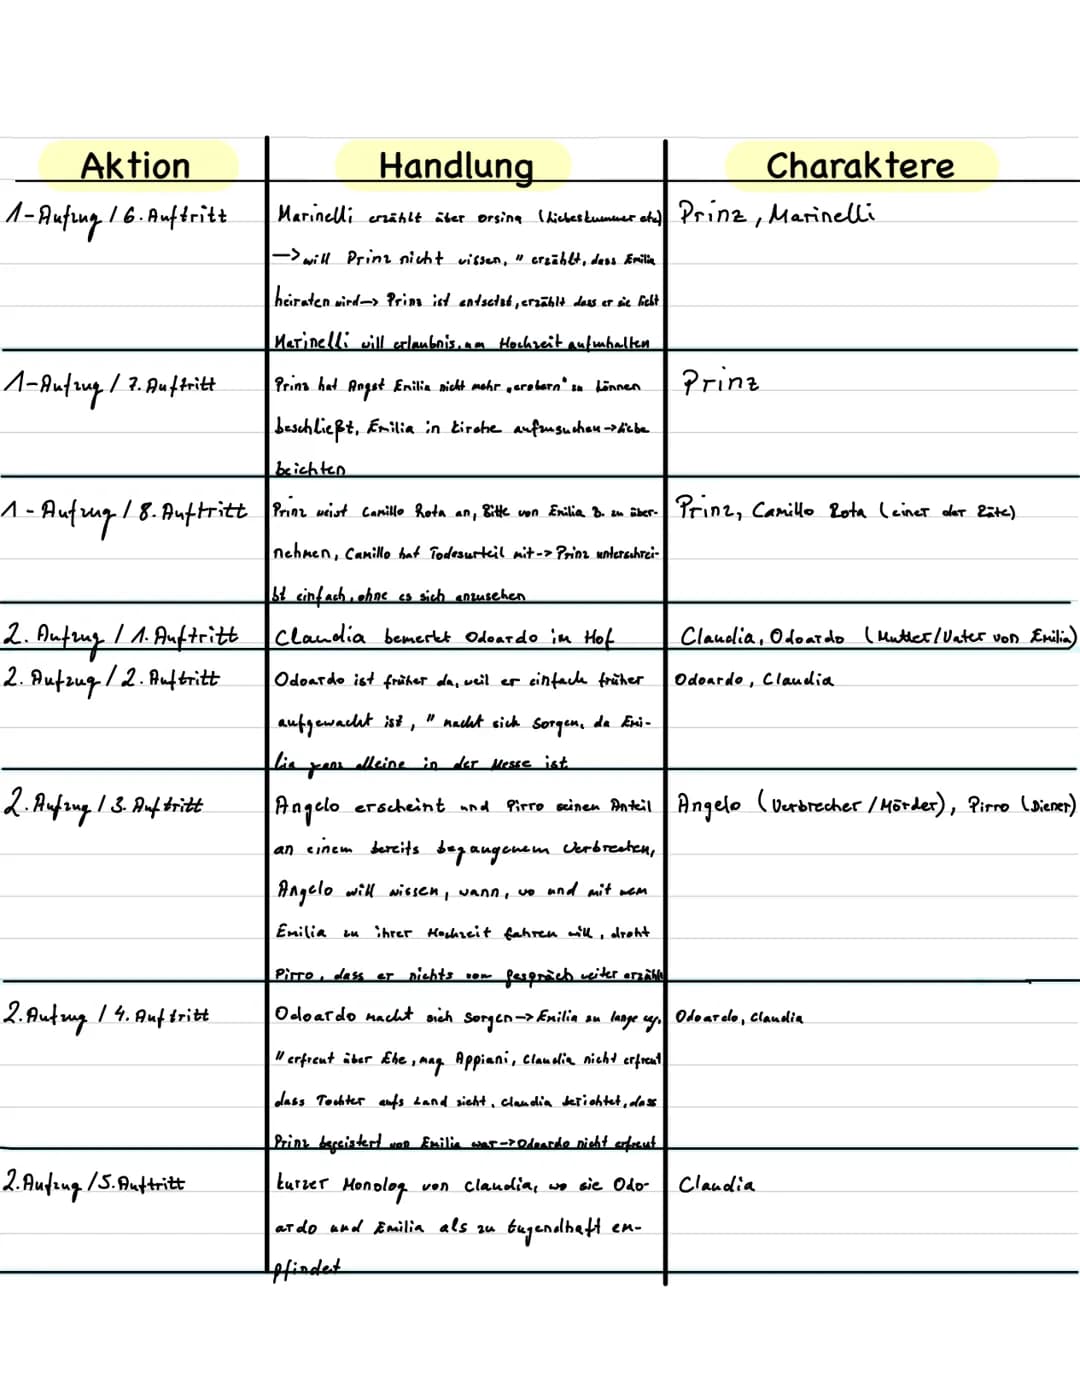 Aktion Handlung Charaktere
1-Aufzug / 6. Auftritt Marinelli erzählt über Orsina (Liebeskummer etc) Prinz, Marinelli
-> will Prinz nicht wissen, " erzählt, dass Emilia
heiraten wird -> Prinz ist entsetzt, erzählt dass er sie liebt
Marinelli will erlaubnis, um Hochzeit aufzuhalten
1-Aufzug / 7. Auftritt Prinz hat Angst Emilia nicht mehr „erobern" zu können Prinz
beschließt, Emilia in Kirche aufzusuchen -> Liebe
beichten
1-Aufzug / 8. Auftritt Prinz weist Camillo Rota an, Bitte von Emilia B. zu über- Prinz, Camillo Rota (einer der Räte)
nehmen, Camillo hat Todesurteil mit -> Prinz unterschrei-
bt einfach, ohne es sich anzusehen
2. Aufzug / 1. Auftritt Claudia bemerkt Odoardo im Hof Claudia, Odoardo (Mutter/Vater von Emilia)
2. Aufzug / 2. Auftritt Odoardo ist früher da, weil er einfach früher Odoardo, Claudia
aufgewacht ist, " macht sich Sorgen, da Emi-
lia ganz alleine in der Messe ist
2. Aufzug / 3. Auftritt Angelo erscheint und Pirro seinen Anteil Angelo (Verbrecher / Mörder), Pirro (Diener)
an einem bereits begangenem Verbrechen,
Angelo will wissen, wann, wo und mit wem
Emilia zu ihrer Hochzeit fahren will, droht
Pirro, dass er nichts vom Gespräch weiter erzählt
2. Aufzug / 4. Auftritt Odoardo macht sich Sorgen -> Emilia zu lange weg, Odoardo, Claudia
" erfreut über Ehe, mag Appiani, Claudia nicht erfreut
dass Tochter aufs Land zieht, Claudia berichtet, dass
Prinz begeistert von Emilia war -> Odoardo nicht erfreut
2. Aufzug / 5. Auftritt kurzer Monolog von Claudia, wo sie Odo- Claudia
ardo und Emilia als zu tugendhaft em-
pfindet